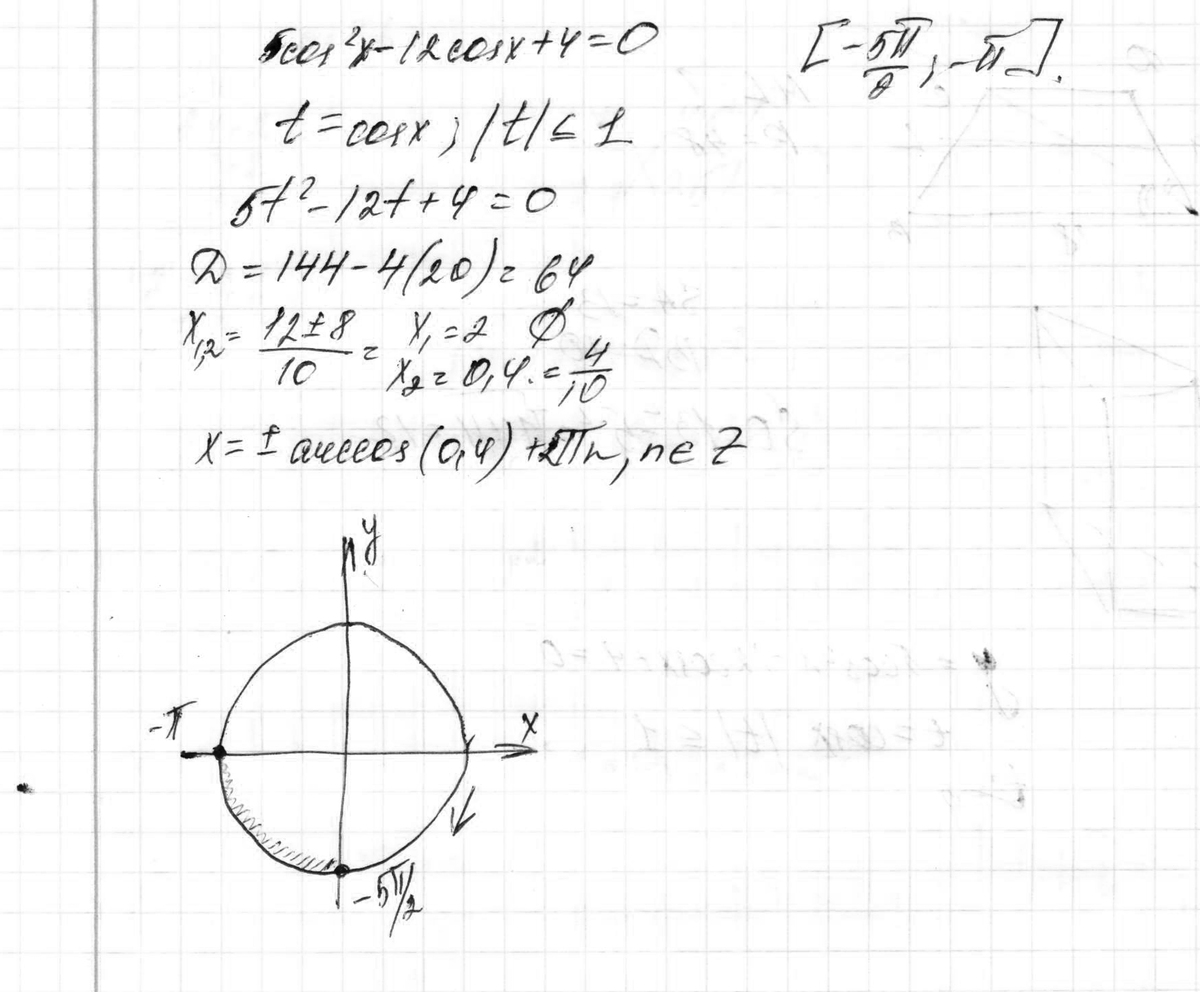 5cos²x - 12cosx + 4 = 0 [-5π/2; -π].
t = cosx; |t| ≤ 1
5t² - 12t + 4 = 0
D = 144 - 4(20) = 64
x₁,₂ = (12 ± 8)/10 = x₁ = 2 ∅
x₂ = 0,4. = 4/10
x = ± arccos(0,4) + 2πn, n ∈ Z
y
-π
x
-5π/2